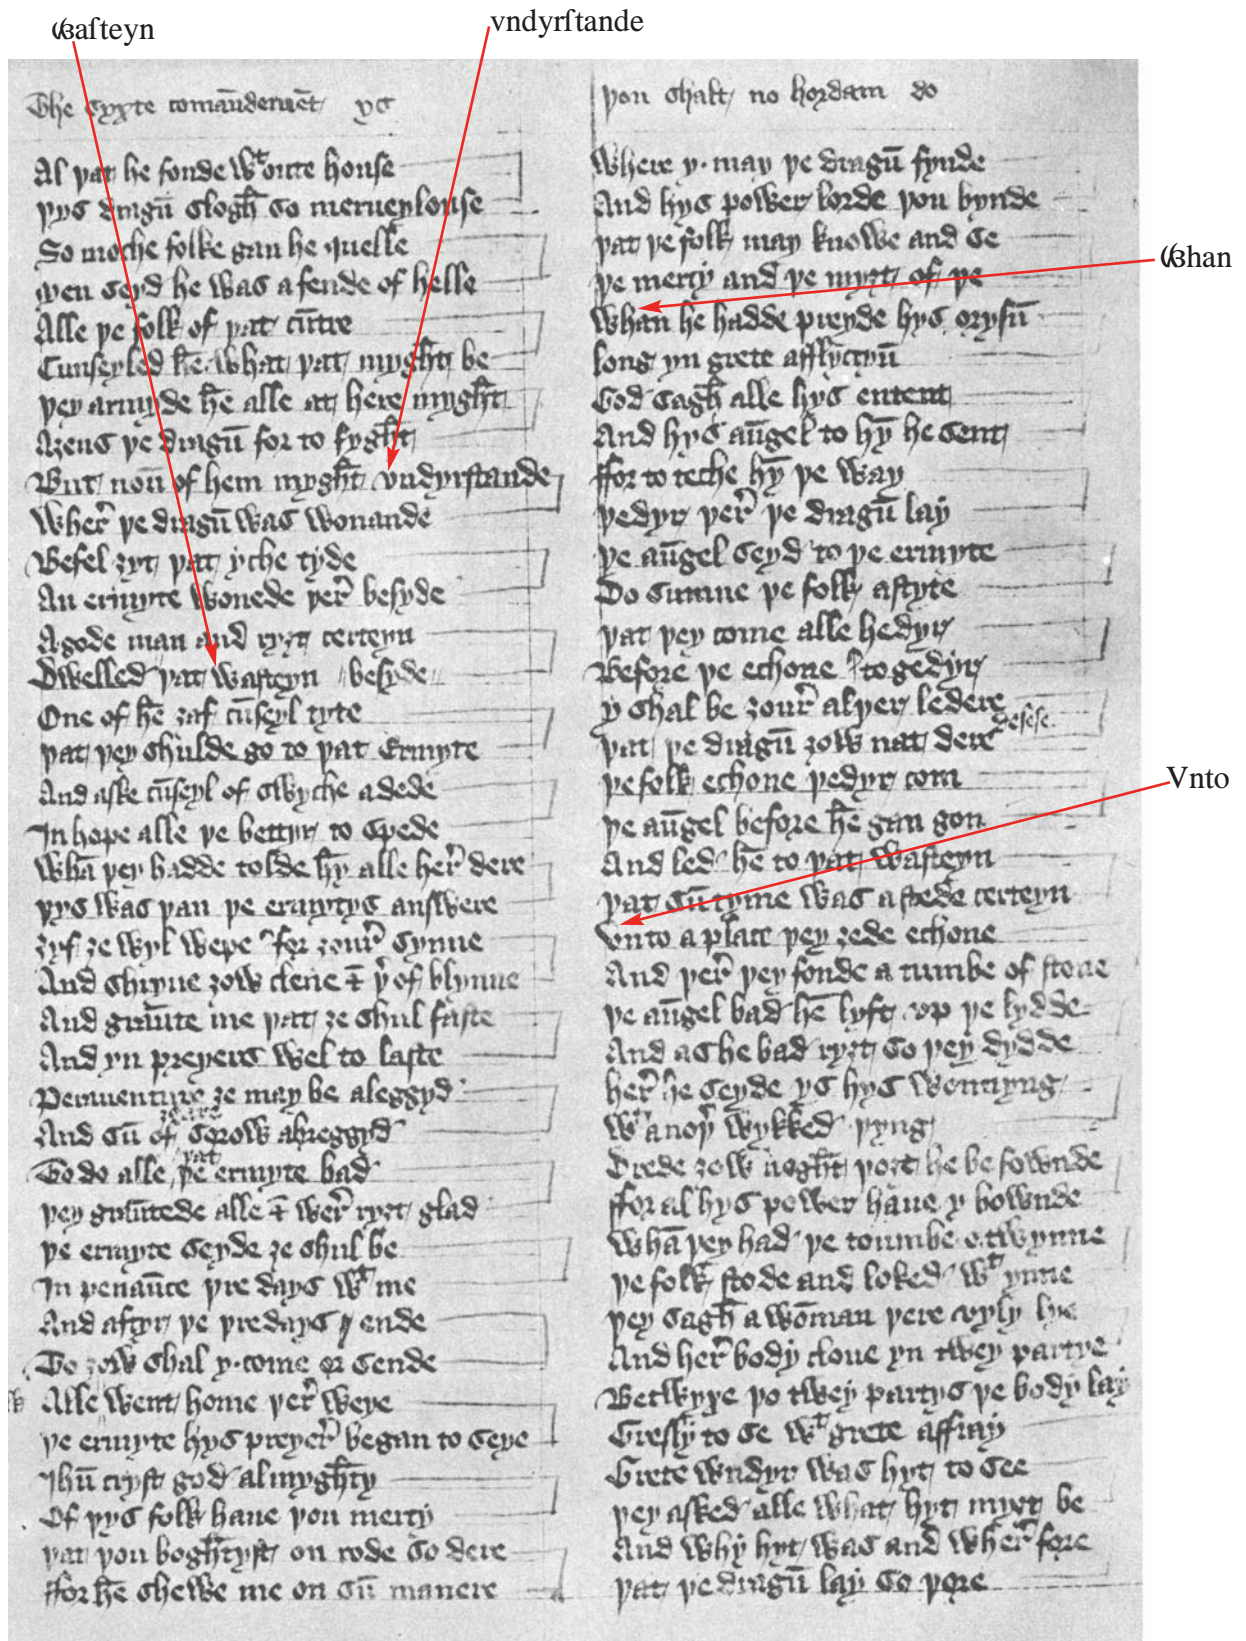 Ꟃaſteyn
vndyrſtande
Ꟃhan
Vnto
The syxte comaūdemēt ys
Al þat he fonde wᵗ oute house
þys dragū slogh̄ so merueylouse
So moche folke gan he quelle
Men seyd he was a fende of helle
Alle þe folk of þat cūtre
Cunseyled hē what þat mygh̄t be
þey armyde hē alle at here mygh̄t
Aȝens þe dragū for to fygh̄t
But noū of hem mygh̄t vndyrſtande
Wher̄ þe dragū was wonande
Befel ȝyt þat yche tyde
An ermyte wonede þer̄ beſyde
A gode man and ryȝt certeyn
Dwelled þat waſteyn beſyde
One of hē ȝaf cūſeyl tyte
þat þey shulde go to þat Ermyte
And aſke cūſeyl of swyche a dede
In hope alle þe bettyr to spede
Whā þey hadde tolde hȳ alle her̄ dere
þys was þan þe ermytys anſwere
ȝyf ȝe wyl wepe for ȝour̄ synne
And shryue ȝow clene & þ̄ of blynne
And graūte me þat ȝe shul faſte
And yn preyers wel to laſte
Perauenture ȝe may be aleggyd
And sū of ȝoure sorow abreggyd
To do alle þat þe ermyte bad
þey graūtede alle & wer̄ ryȝt glad
þe ermyte seyde ȝe shul be
In penaūce þre days wᵗ me
And aftyr þe þre days ende
To ȝow shal y come or sende
Alle went home þer̄ weye
þe ermyte hys preyer̄ began to seye
Ihū cryſt god almygh̄ty
Of þys folk haue þou mercy
þat þou bogh̄tyſt on rode so dere
ffor hē shewe me on sū manere
þou shalt no hordam do
Where y may þe dragū fynde
And hys power lorde þou bynde
þat þe folk may knowe and se
þe mercy and þe myȝt of þe
Whan he hadde preyde hys oryſū
long yn grete afflyccyū
God sagh̄ alle hys entent
And hys aūgel to hȳ he sent
ffor to teche hȳ þe way
þedyr þer̄ þe dragū lay
þe aūgel seyd to þe ermyte
Do sumne þe folk aſtyte
þat þey come alle hedyr
Before þe echone to gedyr
y shal be ȝour̄ alþer ledere
þat þe dragū ȝow nat dere deſeſe
þe folk echone þedyr com
þe aūgel before hē gan gon
And led hē to þat waſteyn
þat sūtyme was a ſtede certeyn
Vnto a place þey ȝede echone
And þer̄ þey fonde a tumbe of ſtone
þe aūgel bad hē lyft vp þe lydde
And as he bad ryȝt so þey dydde
her̄ he seyde ys hys wonnyng
wᵗ anoþ̄ wykked þyng
Drede ȝow nogh̄t þoȝt he be fownde
ffor al hys power haue y bownde
Whā þey had þe toumbe otwynne
þe folk ſtode and loked wᵗ ynne
þey sagh̄ a wōman þere vyly lye
And her̄ body cloue yn twey partye
Betwyxe þo twey partys þe body lay
Greſly to se wᵗ grete affray
Grete wndyr was hyt to see
þey aſked alle what hyt myȝt be
And why hyt was and wher̄ fore
þat þe dragū lay so þore